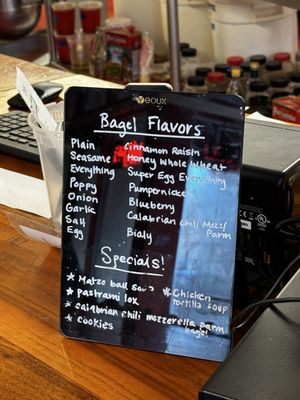 Yeoux
Bagel Flavors
Plain Cinnamon Raisin
Seasame Honey Whole Wheat
Everything Super Egg Everything
Poppy Pumpernickel
Onion Blueberry
Garlic Calabrian Chili Mozz/
Parm
Salt
Egg Bialy
Specials!
* Matzo ball soup
* Chicken
tortilla soup
* pastrami lox
* calabrian chili mozzerella parm
bagel
* cookies